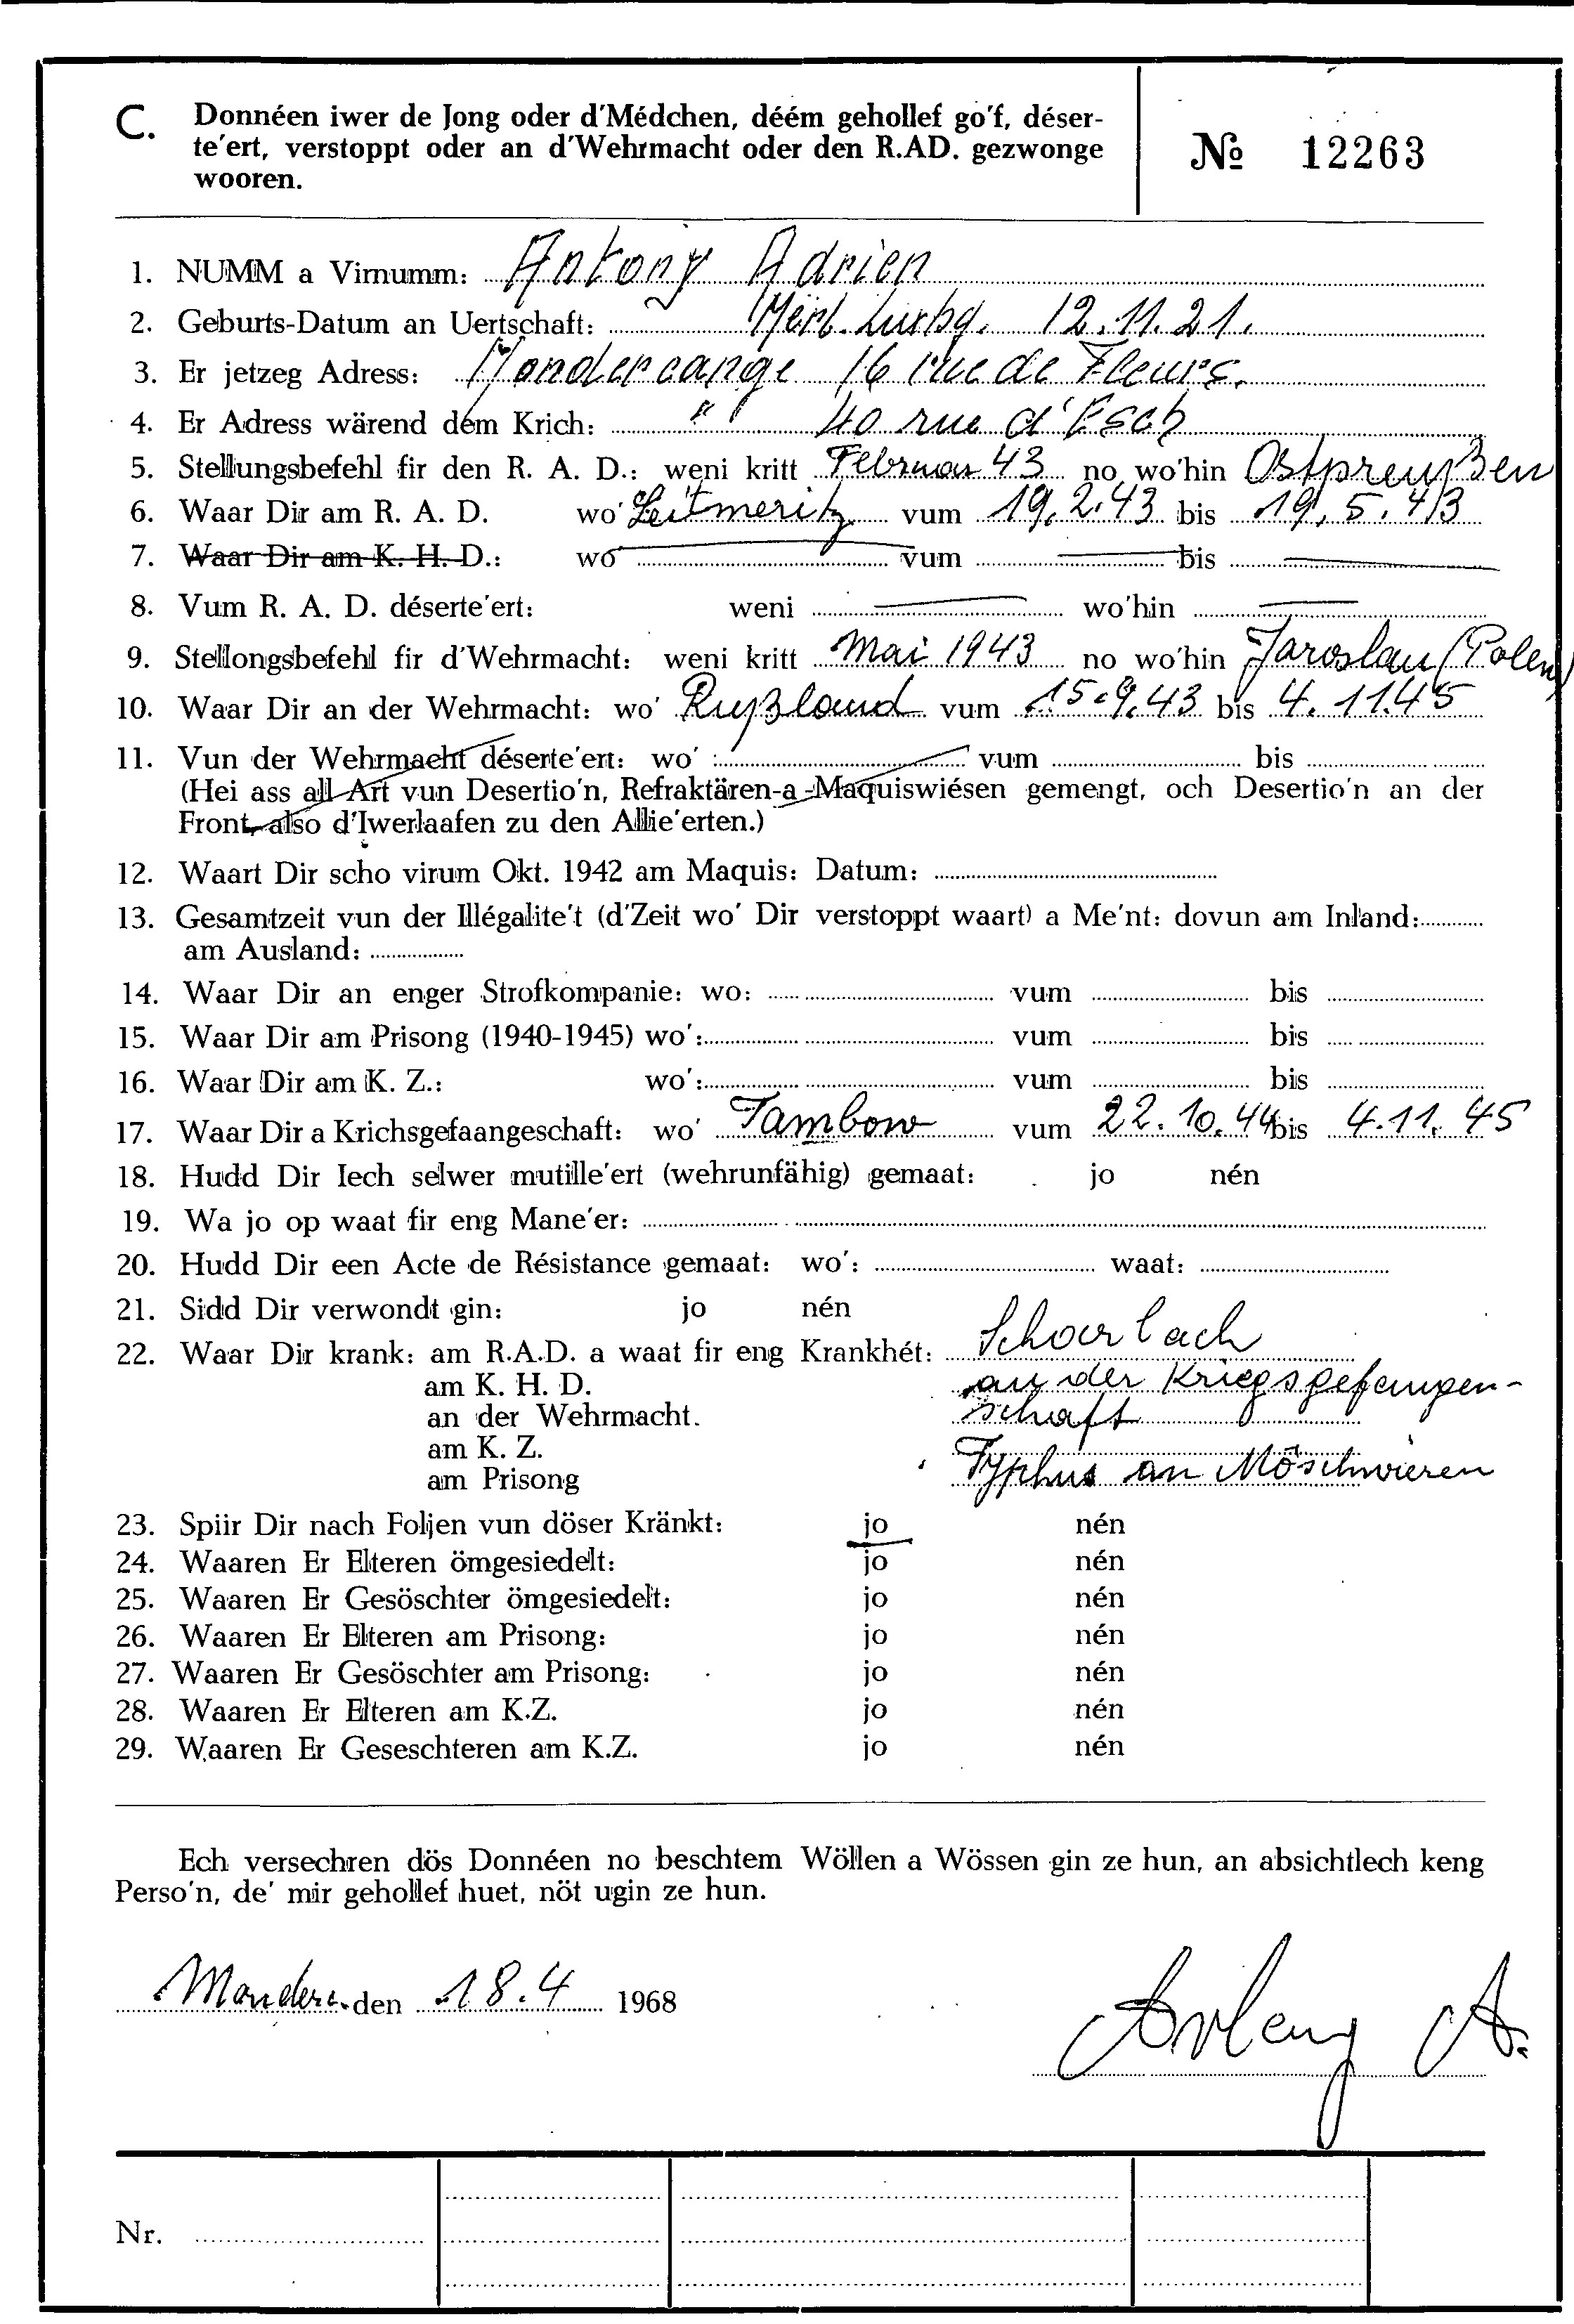 C. Donnéen iwer de Jong oder d'Médchen, déém gehollef go'f, déser-
te'ert, verstoppt oder an d'Wehrmacht oder den R.AD. gezwonge
wooren.
№ 12263
1. NUMM a Virnumm: Antony Adrien
2. Geburts-Datum an Uertschaft: Merl. Luxbg. 12.11.21.
3. Er jetzeg Adress: Mondercange 16 rue de Fleurs.
4. Er Adress wärend dém Krich: " 40 rue d'Esch
5. Stellungsbefehl fir den R. A. D.: weni kritt Februar 43 no wo'hin Ostpreußen
6. Waar Dir am R. A. D. wo' Leitmeritz vum 19.2.43 bis 19.5.43
7. Waar Dir am K. H. D.: wo vum bis
8. Vum R. A. D. déserte'ert: weni — wo'hin —
9. Stellongsbefehl fir d'Wehrmacht: weni kritt Mai 1943 no wo'hin Jaroslau (Polen)
10. Waar Dir an der Wehrmacht: wo' Rußland vum 15.9.43 bis 4.11.45
11. Vun der Wehrmacht déserte'ert: wo' : vum bis
(Hei ass all Art vun Desertio'n, Refraktären-a-Maquiswiésen gemengt, och Desertio'n an der
Front, also d'Iwerlaafen zu den Allie'erten.)
12. Waart Dir scho virum Okt. 1942 am Maquis: Datum:
13. Gesamtzeit vun der Illégalite't (d'Zeit wo' Dir verstoppt waart) a Me'nt: dovun am Inland:
am Ausland:
14. Waar Dir an enger Strofkompanie: wo: vum bis
15. Waar Dir am Prisong (1940-1945) wo': vum bis
16. Waar Dir am K. Z.: wo': vum bis
17. Waar Dir a Krichsgefaangeschaft: wo' Tambow vum 22.10.44 bis 4.11.45
18. Hudd Dir Iech selwer mutille'ert (wehrunfähig) gemaat: jo nén
19. Wa jo op waat fir eng Mane'er:
20. Hudd Dir een Acte de Résistance gemaat: wo': waat:
21. Sidd Dir verwondt gin: jo nén
22. Waar Dir krank: am R.A.D. a waat fir eng Krankhét: Scharlach
am K. H. D. an der Kriegsgefangen-
an der Wehrmacht. schaft
am K. Z.
am Prisong Typhus an Möschwieren
23. Spiir Dir nach Foljen vun döser Kränkt: jo nén
24. Waaren Er Elteren ömgesiedelt: jo nén
25. Waaren Er Gesöschter ömgesiedelt: jo nén
26. Waaren Er Elteren am Prisong: jo nén
27. Waaren Er Gesöschter am Prisong: jo nén
28. Waaren Er Elteren am K.Z. jo nén
29. Waaren Er Geseschteren am K.Z. jo nén
Ech versechren dös Donnéen no beschtem Wöllen a Wössen gin ze hun, an absichtlech keng
Perso'n, de' mir gehollef huet, nöt ugin ze hun.
Monderc. den 18.4 1968
Antony A.
Nr.